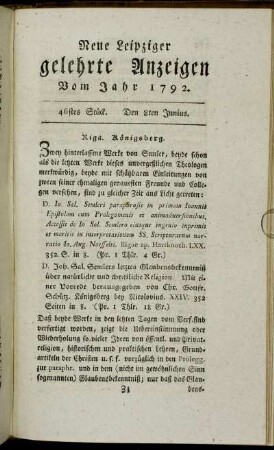 Neue Leipziger
gelehrte Anzeigen
Vom Jahr 1792.
46stes Stück. Den 8ten Junius.
Riga. Königsberg.
Zwey hinterlassene Werke von Semler, beyde schon
als die letzten Werke dieses unvergeßlichen Theologen
merkwürdig, beyde mit schätzbaren Einleitungen von
zween seiner ehmaligen genauesten Freunde und Colle-
gen versehen, sind zu gleicher Zeit ans Licht getreten:
D. Io. Sal. Semleri paraphrasis in primam Ioannis
Epistolam cum Prolegomenis et animadversionibus,
Accessit de Io. Sal. Semlero eiusque ingenio inprimis
et meritis in interpretationem SS. Scripturarum nar-
ratio Io. Aug. Noesselti. Rigae ap. Hartknoch LXX.
352 S. in 8. (Pr. 1 Thlr. 4 Gr.)
D. Joh. Sal. Semlers letztes Glaubensbekenntniß
über natürliche und christliche Religion. Mit ei-
ner Vorrede herausgegeben von Chr. Gottfr.
Schütz. Königsberg bey Nicolovius. XXIV. 352
Seiten in 8. (Pr. 1 Thlr. 12 Gr.)
Daß beyde Werke in den letzten Tagen vom Verf. sind
verfertigt worden, zeigt die Uebereinstimmung oder
Wiederholung so vieler Ideen von öffentl. und Privat-
religion, historischen und praktischen Lehren, Grund-
artikeln der Christen u. s. f. vorzüglich in den Prolegg.
zur paraphr. und in dem (im nicht gewöhnlichen Sinn
sogenannten) Glaubensbekenntniß; nur daß das Glau-
Zz bens-